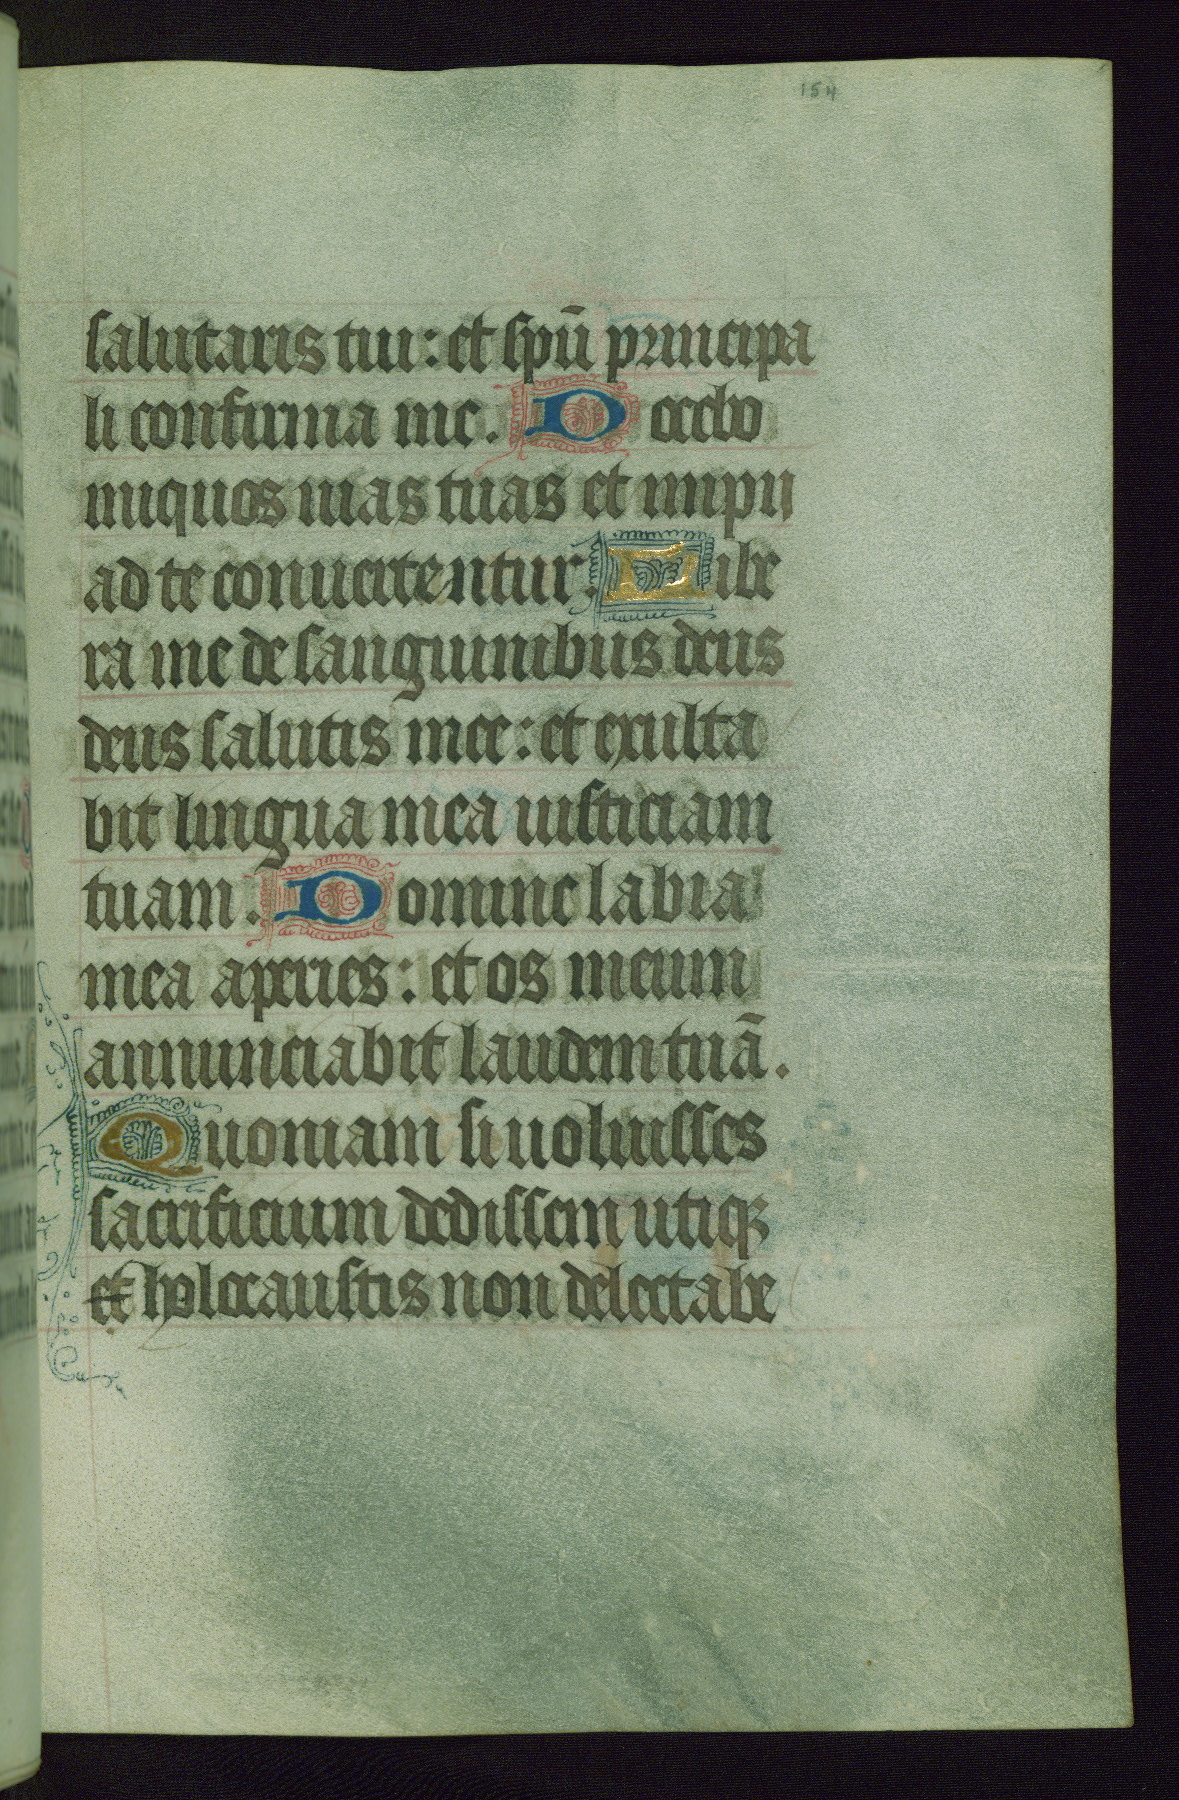 154
salutaris tui : et spū principa
li confirma me . Docebo
iniquos uias tuas et impii
ad te conuertentur . Libe
ra me de sanguinibus deus
deus salutis mee : et exulta
bit lingua mea iusticiam
tuam . Domine labia
mea aperies : et os meum
annunciabit laudem tuā .
Quoniam si uoluisses
sacrificium dedissem utiqꝫ
et holocaustis non delectabe